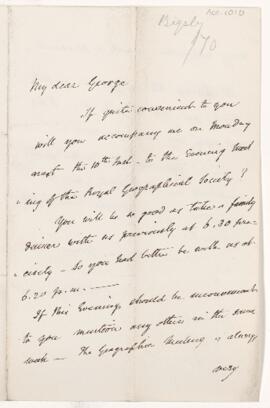 Acc. 1010
Bigsby
/70
My dear George
If quite convenient to you
will you accompany me on Monday
next the 10th Inst. to the Evening Meet
ing of the Royal Geographical Society?
You will be so good as take a family
dinner with us previously at 6.30 pre-
cisely - so you had better be with us at
6.20 p.m. —
If this Evening should be inconvenient
to you mention any other in the same
week — The Geographic Meeting is always
very